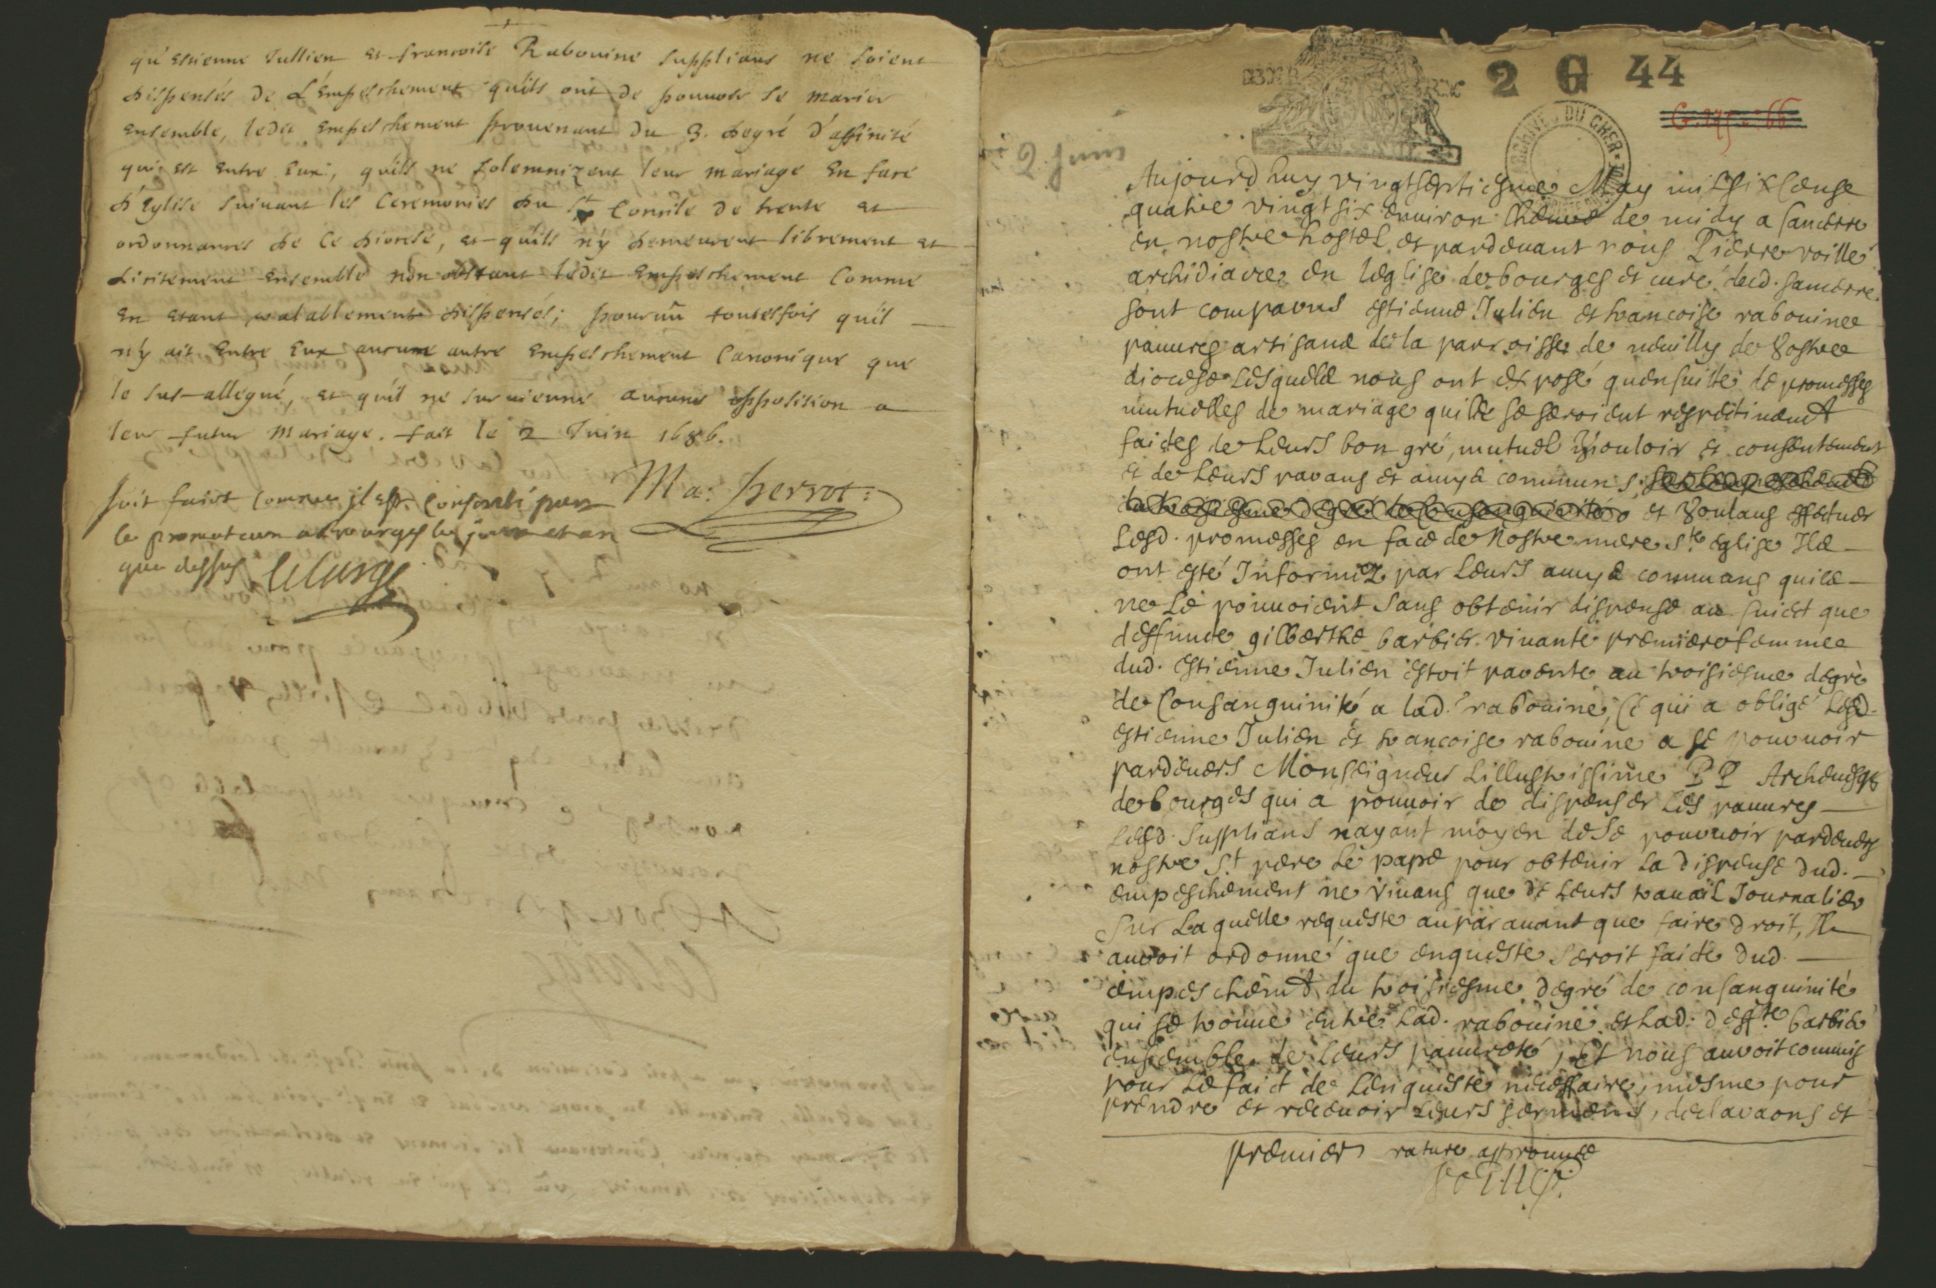 qu'Estienne Jullien et francoise Rabouine supplians ne soient
dispensés de L'Empeschement qu'ils ont de pouuoir se marier
ensemble, ledit Empeschement prouenant du 3. degré d'affinité
qui est entre Eux, qu'ils ne solemnizent leur mariage En face
d'Eglise suiuant les Ceremonies du st Concile de trente et
ordonnances de ce diocese, et qu'ils n'y demeurent librement et
licitement Ensemble non obstant ledit Empeschement Comme
en etant valablement dispensés; pourueu toutesfois qu'il
n'y ait Entre Eux aucune autre Empeschement Canonique que
le sus-allegué, et qu'il ne suruienne aucune opposition a
leur futur Mariage. fait le 2 Juin 1686.
Ma: Perrot:
soit faict comme il est consenti par
le promoteur a bourges les jour et an
que dessus Lelarge
2 G 44
2 Juin
Aujourd huy vingtseptiesme May mil six Cens
quatre vingt six enuiron lheure de midy a Sancerre
en nostre hostel et pardeuant nous Pierre voille
archidiacre en leglise de bourges et curé dud. Sancerre
sont comparus estienne Julien et francoise rabouine
pauures artisans de la parroisse de neuilly de Nostre
diocese Lesquels nous ont exposé quensuitte de promesses
mutuelles de mariage quils se seroient respectiuement
faites de Leurs bon gré, mutuel Vouloir et consentement
et de Leurs parans et amys communs
et Voulans effectuer
Lesd. promesses en face de Nostre mere ste Eglise Ils
ont esté Informez par Leurs amys communs quils
ne Le pouuoient sans obtenir dispense au suiet que
deffunte gilberthe barbier viuante premiere femme
dud. estienne Julien estoit parente au troisiesme degré
de Consanguinité a lad. rabouine, Ce qui a obligé Lesd.
estienne Julien et francoise rabouine a se pouruoir
pardeuers Monseigneur Lillustrissime PP Archeuesq
de bourges qui a pouuoir de dispenser Les pauures
Lesd. Supplians nayant moyen de se pouruoir pardeuers
nostre St pere Le pape pour obtenir La dispense dud.
empeschement ne viuans que de Leurs trauail Journalier
Sur Laquelle requeste auparauant que faire droit, Il
auroit ordonné que enqueste seroit faicte dud.
empeschemt du troisiesme degré de consanguinité
qui se trouue entre Lad. rabouine et Lad. deffte barbier
ensemble de Leurs pauureté, Et nous auroit commis
pour Le faict de Lenqueste necessaire, mesme pour
prendre et receuoir Leurs sermens, declaraons et
premier rature approuuée
voille